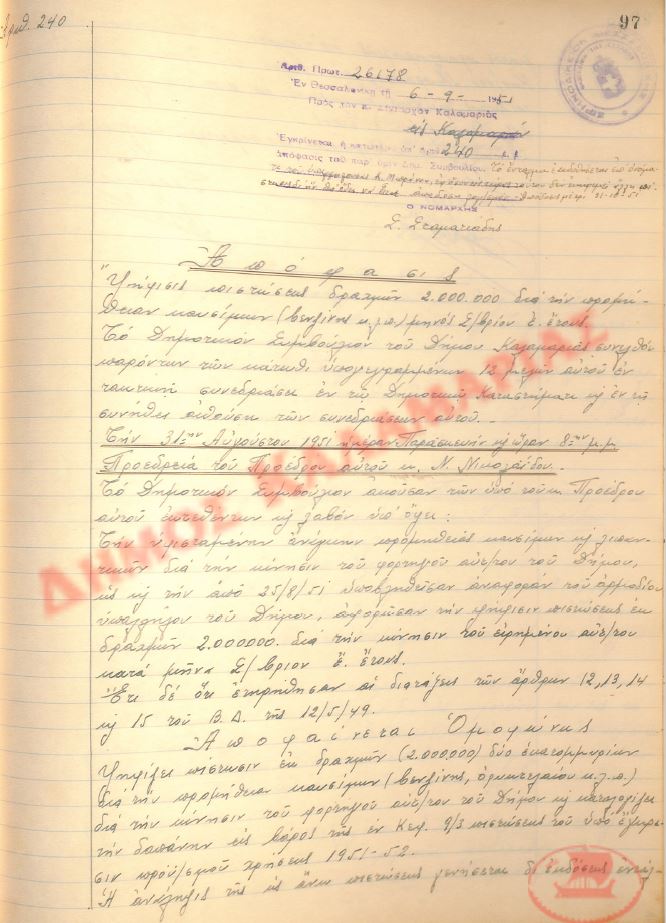 Ἀριθ. 240
97
Ἀριθ. Πρωτ. 26178
Ἐν Θεσσαλονίκῃ τῇ 6-9-1951
Πρὸς τὸν κ. Δήμαρχον Καλαμαριᾶς
εἰς Καλαμαριάν
Ἐγκρίνεται ἡ κατωτέρω ὑπ' ἀριθ. 240
ἀπόφασις τοῦ παρ' ὑμῖν Δημ. Συμβουλίου. Τὸ ἔνταλμα ἐκδοθήσεται ἐπ' ὀνόμα-
31-10-51
Ο ΝΟΜΑΡΧΗΣ
Σ. Σταματιάδης
Ἀπόφασις
"Ψήφισις πιστώσεως δραχμῶν 2.000.000 διὰ τὴν προμή-
θειαν καυσίμων (βενζίνης κ.λ.π.) μηνὸς Σ/βρίου ἐ. ἔτους.
Τὸ Δημοτικὸν Συμβούλιον τοῦ Δήμου Καλαμαριᾶς συνελθὸν
παρόντων τῶν κάτωθι ὑπογεγραμμένων 12 μελῶν αὐτοῦ ἐν
τακτικῇ συνεδριάσει ἐν τῷ Δημοτικῷ Καταστήματι κ ἐν τῇ
συνήθει αἰθούσῃ τῶν συνεδριάσεων αὐτοῦ.-
Τὴν 31ην Αὐγούστου 1951 ἡμέραν Παρασκευὴν κ ὥραν 8ην μ.μ.
Προεδρείᾳ τοῦ Προέδρου αὐτοῦ κ. Ν. Νικολαΐδου.-
Τὸ Δημοτικὸν Συμβούλιον ἀκοῦσαν τῶν ὑπὸ τοῦ κ. Προέδρου
αὐτοῦ ἐκτεθέντων κ λαβὸν ὑπ' ὄψει:
Τὴν ὑφισταμένην ἀνάγκην προμηθείας καυσίμων κ λιπαν-
τικῶν διὰ τὴν κίνησιν τοῦ φορτηγοῦ αὐτ/του τοῦ Δήμου,
ὡς κ τὴν ἀπὸ 25/8/51 ὑποβληθεῖσαν ἀναφορὰν τοῦ ἁρμοδίου
ὑπαλλήλου τοῦ Δήμου, ἀφορῶσαν τὴν ψήφισιν πιστώσεως ἐκ
δραχμῶν 2.000.000. διὰ τὴν κίνησιν τοῦ εἰρημένου αὐτ/του
κατὰ μῆνα Σ/βριον ἐ. ἔτους.
Ἔτι δὲ ὅτι ἐτηρήθησαν αἱ διατάξεις τῶν ἄρθρων 12, 13, 14
κ 15 τοῦ Β.Δ. τῆς 12/5/49.
Ἀποφαίνεται Ὁμοφώνως
Ψηφίζει πίστωσιν ἐκ δραχμῶν (2.000.000) δύο ἑκατομμυρίων
διὰ τὴν προμήθειαν καυσίμων (βενζίνης, ὀρυκτελαίου κ.λ.π.)
διὰ τὴν κίνησιν τοῦ φορτηγοῦ αὐτ/του τοῦ Δήμου κ καταλογίζει
τὴν δαπάνην εἰς βάρος τῆς ἐν Κεφ. 9/3 πιστώσεως τοῦ ὑπὸ ἔγκρι-
σιν προϋ/σμοῦ χρήσεως 1951-52.
Ἡ ἀνάληψις τῆς ὡς ἄνω πιστώσεως γενήσεται δι' ἐκδόσεως ἐντάλ-
ΔΗΜΟΣ ΚΑΛΑΜΑΡΙΑΣ